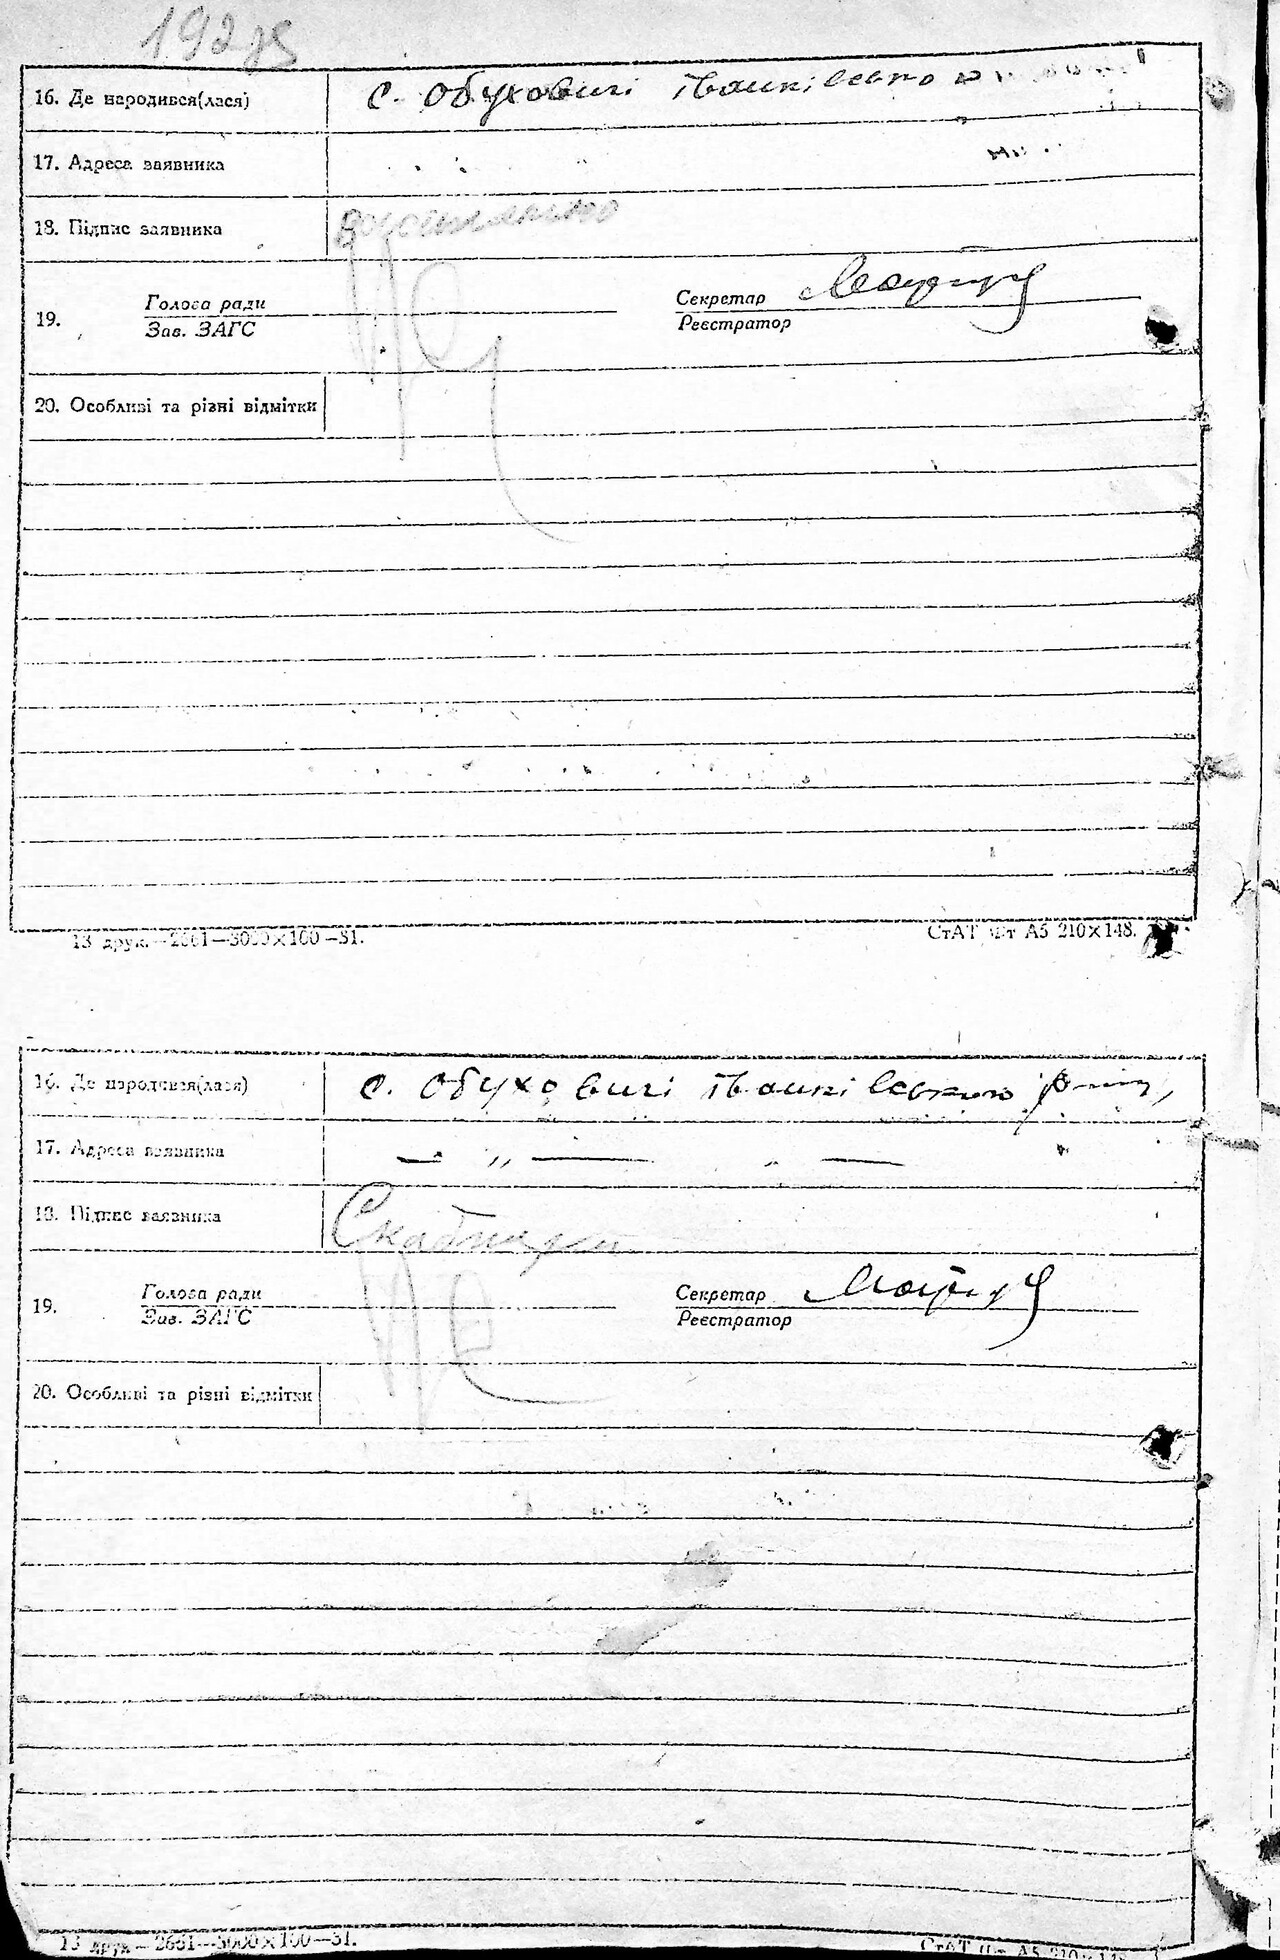 192зв
16. Де народився(лася) с. Обуховичі Іванківського
17. Адреса заявника
18. Підпис заявника
19. Голова ради Секретар
Зав. ЗАГС Реєстратор
20. Особливі та різні відмітки
13 друк.—2661—3000×100—31.
СтАТ ф-т А5 210×148.
16. Де народився(лася) с. Обуховичі Іванківського р-ну,
17. Адреса заявника — „ — —
18. Підпис заявника
19. Голова ради Секретар
Зав. ЗАГС Реєстратор
20. Особливі та різні відмітки
13 друк.—2661—3000×100—31.
СтАТ ф-т А5 210×148